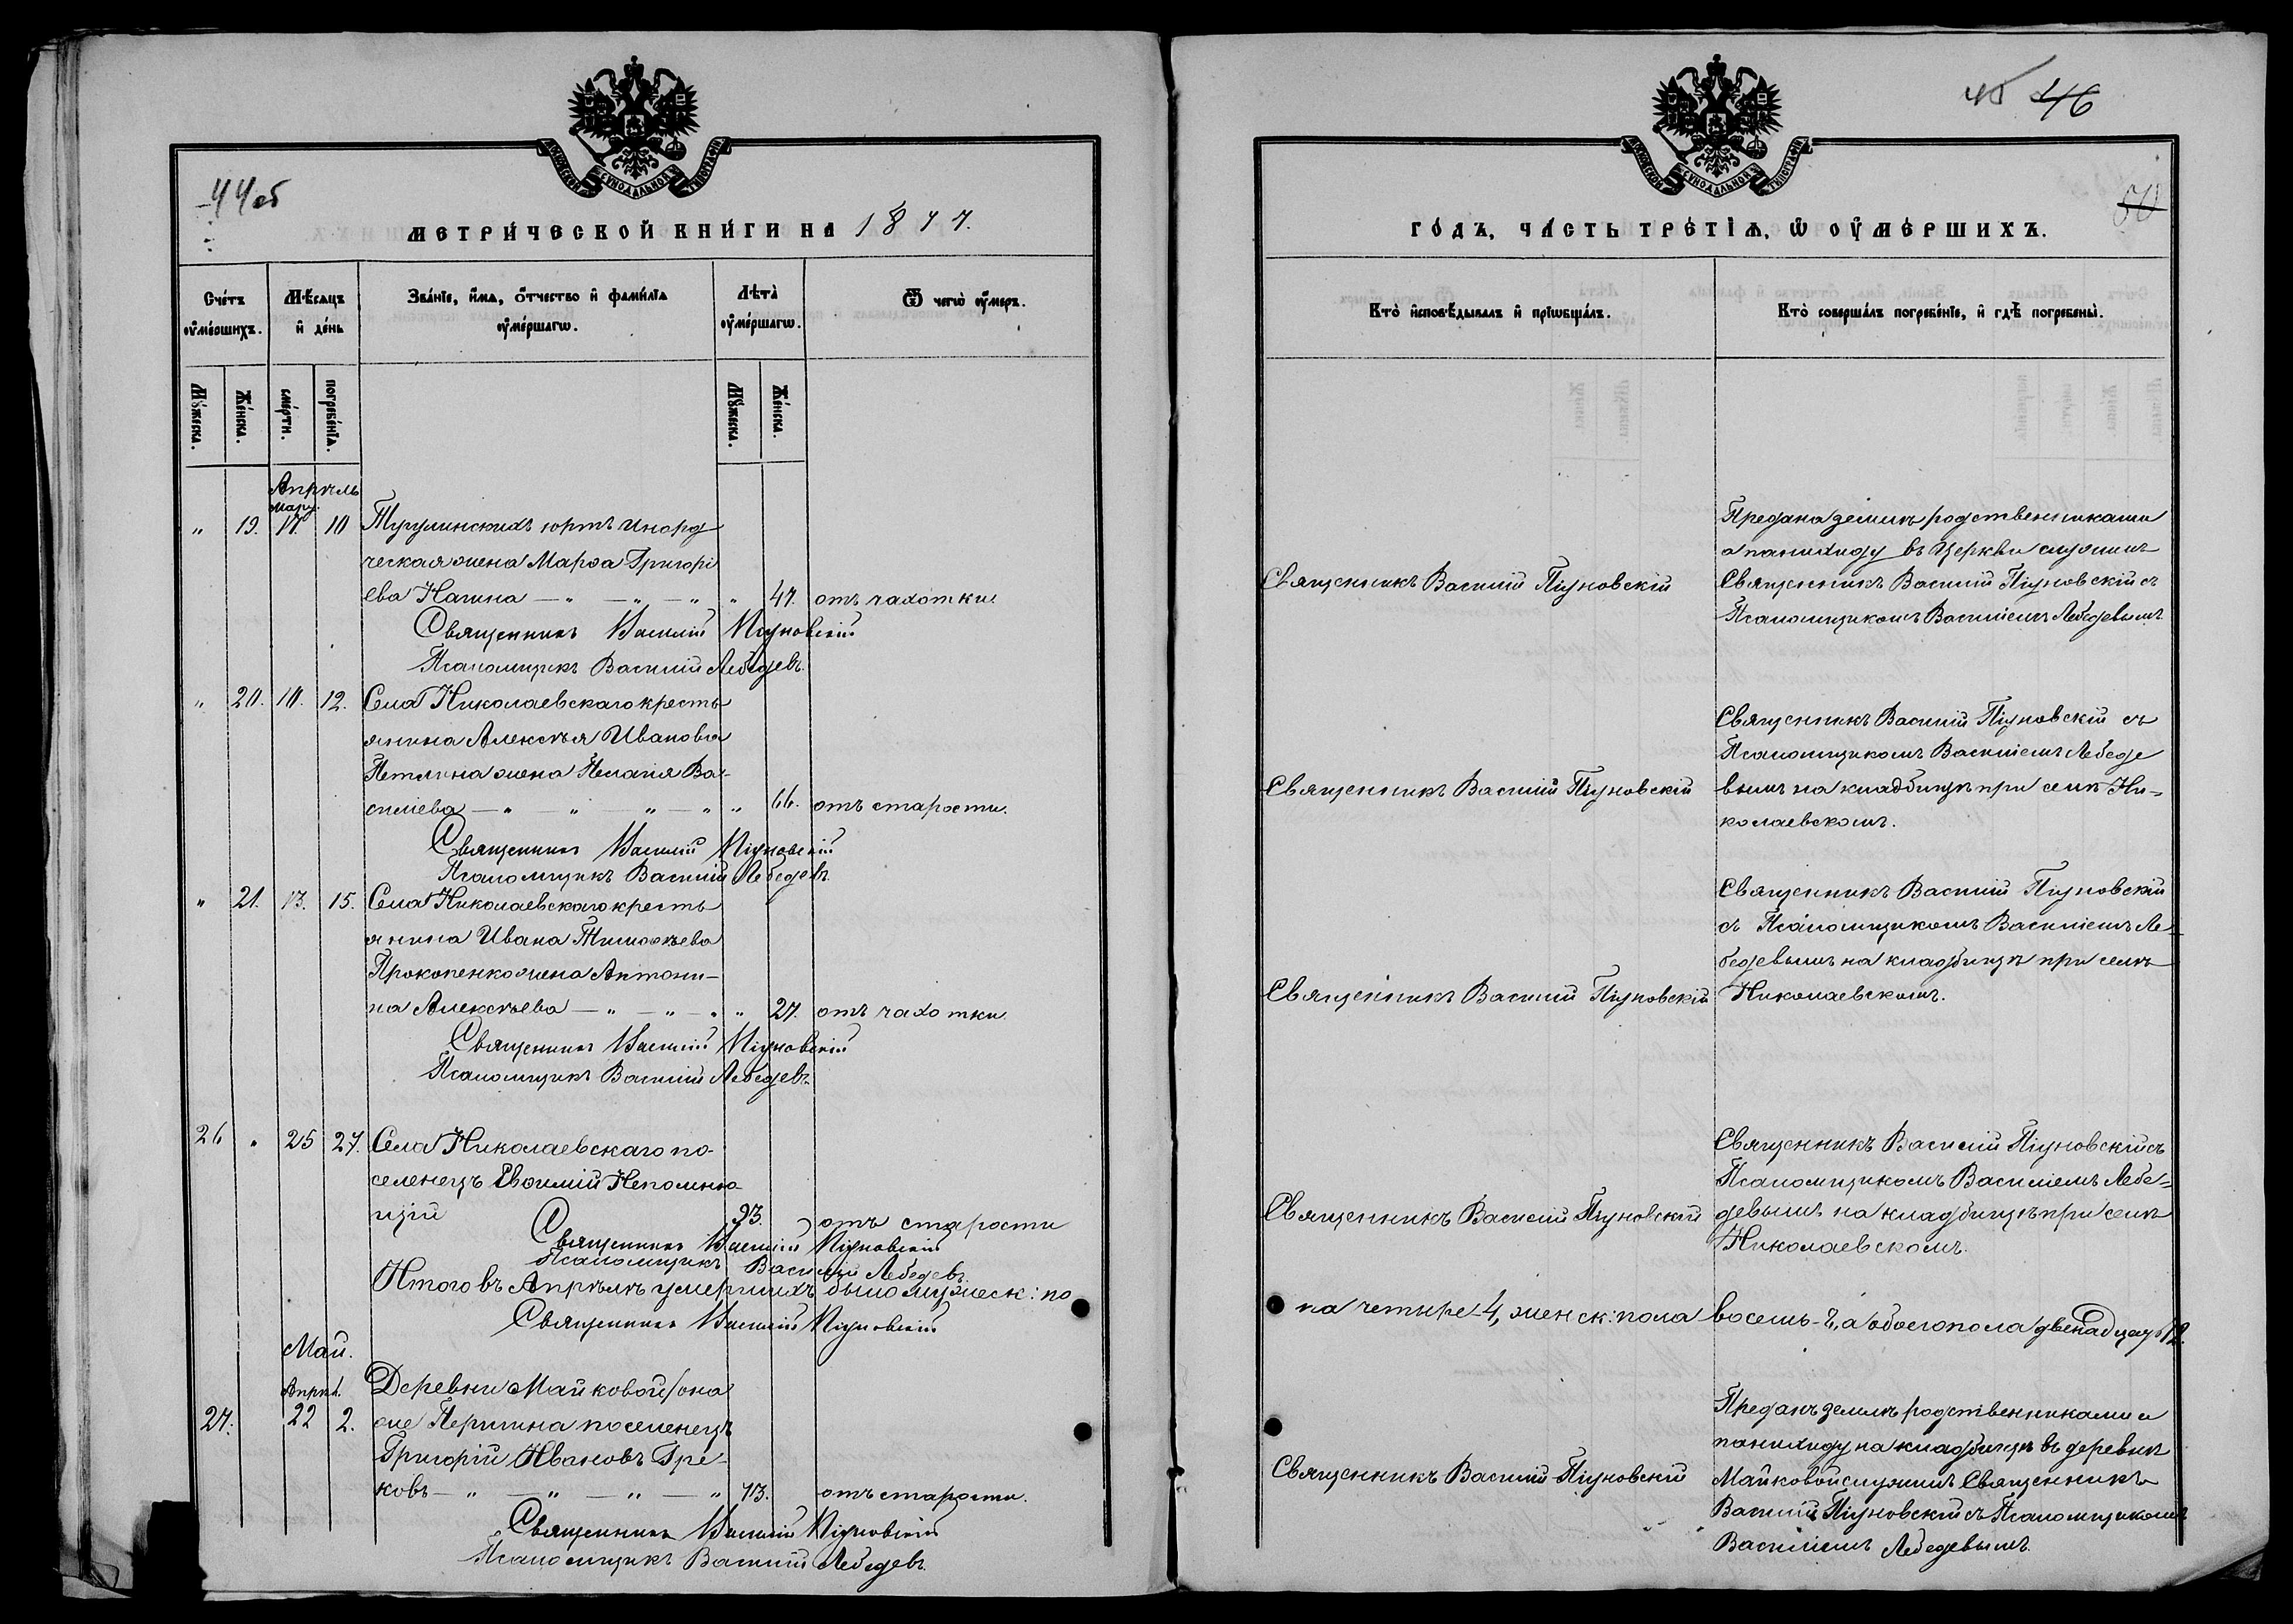 44об
МОСКОВСКОЙ СѴНОДАЛЬНОЙ ТИПОГРАФІИ
МЕТРИ́ЧЕСКОЙ КНИ́ГИ НА 1877.
Сче́тъ ᲂу҆ме́ршихъ.
Мѣ́сѧцъ и҆ де́нь
Зва́нїе, и҆́мѧ, ѻ҆́тчество и҆ фамі́лїѧ ᲂу҆ме́ршагѡ.
Лѣта̀ ᲂу҆ме́ршагѡ.
Ѿ чегѡ̀ ᲂу҆́меръ.
Мꙋ́жеска.
Же́нска.
сме́рти.
погребе́нїѧ.
Мꙋ́жеска.
Же́нска.
Апрѣль
Мар.
„ 19. 17. 10 Тугулинскихъ юртъ инород
ческая жена Марѳа Григорі
ева Нагина — „ — „ — „ „ 47. отъ чахотки
Священникъ Василій Піуновскій
Псаломщикъ Василій Лебедевъ.
„ 20. 10. 12. Села Николаевскаго кресть
янина Алексѣя Иванова
Петлина жена Пелагія Ва-
силіева — „ — „ — „ — „ „ 66. отъ старости.
Священникъ Василій Піуновскій
Псаломщикъ Василій Лебедевъ.
„ 21. 13. 15. Села Николаевскаго кресть
янина Ивана Тимоѳѣева
Прокопенко жена Антони-
на Алексѣева — „ — „ — „ „ 27. отъ чахотки.
Священникъ Василій Піуновскій
Псаломщикъ Василій Лебедевъ.
26 „ 25 27. Села Николаевскаго по
селенецъ Евѳимій Непомню
щій 93. отъ старости
Священникъ Василій Піуновскій
Псаломщикъ Василій Лебедевъ.
Итого въ Апрѣлѣ умершихъ было мужеск: по
Священникъ Василій Піуновскій
Май.
Апрѣл.
27. 22 2. Деревни Майковой (она
же Першина поселенецъ
Григорій Ивановъ Гре-
ковъ — „ — „ — „ — „ 73. отъ старости.
Священникъ Василій Піуновскій
Псаломщикъ Василій Лебедевъ.
45 46
50
МОСКОВСКОЙ СѴНОДАЛЬНОЙ ТИПОГРАФІИ
ГО́ДЪ, ЧА́СТЬ ТРЕ́ТЇѦ, Ѡ҆ ОУ҆МЕ́РШИХЪ.
Кто̀ и҆сповѣ́дывалъ и҆ прїѡбща́лъ.
Кто̀ соверша́лъ погребе́нїе, и҆ гдѣ̀ погребены̀.
Священникъ Василій Піуновскій
Предана землѣ родственниками
а панихиду въ церкви служилъ
Священникъ Василій Піуновскій съ
Псаломщикомъ Василіемъ Лебедевымъ.
Священникъ Василій Піуновскій
Священникъ Василій Піуновскій съ
Псаломщикомъ Василіемъ Лебеде
вымъ на кладбищѣ при селѣ Ни-
колаевскомъ.
Священникъ Василій Піуновскій
Священникъ Василій Піуновскій
съ Псаломщикомъ Василіемъ Ле-
бедевымъ на кладбищѣ при селѣ
Николаевскомъ.
Священникъ Василій Піуновскій
Священникъ Василій Піуновскій съ
Псаломщикомъ Василіемъ Лебе-
девымъ на кладбищѣ при селѣ
Николаевскомъ.
ла четыре-4, женск: пола восемь-8, а обоего пола двенадцать 12.
Священникъ Василій Піуновскій
Преданъ землѣ родственниками а
панихиду на кладбищѣ въ деревнѣ
Майковой служилъ Священникъ
Василій Піуновскій съ Псаломщикомъ
Василіемъ Лебедевымъ.